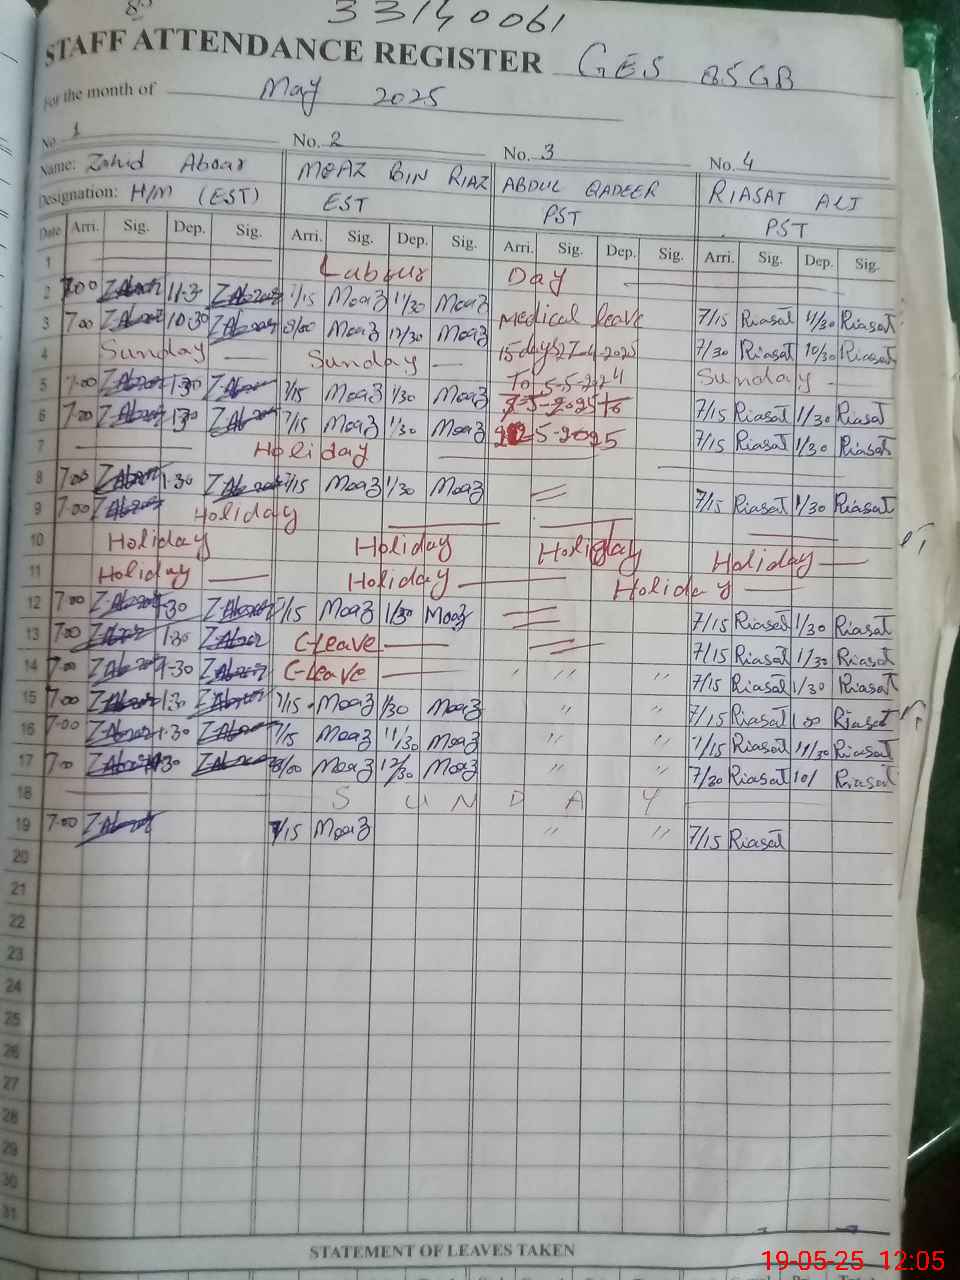 33140061
STAFF ATTENDANCE REGISTER GES 85GB
For the month of May 2025
No. 1 No. 2 No. 3 No. 4
Name: Zahid Abrar MOAZ BIN RIAZ ABDUL QADEER RIASAT ALI
Designation: H/M (EST) EST PST PST
Date Arri. Sig. Dep. Sig. Arri. Sig. Dep. Sig. Arri. Sig. Dep. Sig. Arri. Sig. Dep. Sig.
1 Labour Day
2 7:00 ZAbrar 11-3 ZAbrar 7/15 Moaz 11/30 Moaz Medical leave 7/15 Riasat 11/30 Riasat
3 7:00 ZAbrar 10-30 ZAbrar 8/00 Moaz 12/30 Moaz 15 days 27-4-2025 7/30 Riasat 10/30 Riasat
4 Sunday Sunday To Sunday
5 7:00 ZAbrar 1-30 ZAbrar 7/15 Moaz 1/30 Moaz 7/15 Riasat 1/30 Riasat
6 7:00 ZAbrar 1-30 ZAbrar 7/15 Moaz 1/30 Moaz 5-2025 7/15 Riasat 1/30 Riasat
7 Holiday
8 7:00 ZAbrar 1-30 ZAbrar 7/15 Moaz 1/30 Moaz 7/15 Riasat 1/30 Riasat
9 7:00 ZAbrar Holiday
10 Holiday Holiday Holiday Holiday
11 Holiday Holiday Holiday
12 7:00 ZAbrar 1-30 ZAbrar 7/15 Moaz 1/30 Moaz 7/15 Riasat 1/30 Riasat
13 7:00 ZAbrar 1-30 ZAbrar C-Leave 7/15 Riasat 1/30 Riasat
14 7:00 ZAbrar 1-30 ZAbrar C-Leave " " 7/15 Riasat 1/30 Riasat
15 7:00 ZAbrar 1-30 ZAbrar 7/15 Moaz 1/30 Moaz " " 7/15 Riasat 1:00 Riasat
16 7:00 ZAbrar 1-30 ZAbrar 7/15 Moaz 11/30 Moaz " " 7/15 Riasat 11/30 Riasat
17 7:00 ZAbrar ZAbrar 8/00 Moaz 12/30 Moaz " " 7/30 Riasat 10/ Riasat
18 S U N D A Y
19 7:00 ZAbrar 7/15 Moaz " " 7/15 Riasat
20
21
22
23
24
25
26
27
28
29
30
31
STATEMENT OF LEAVES TAKEN
19-05-25 12:05